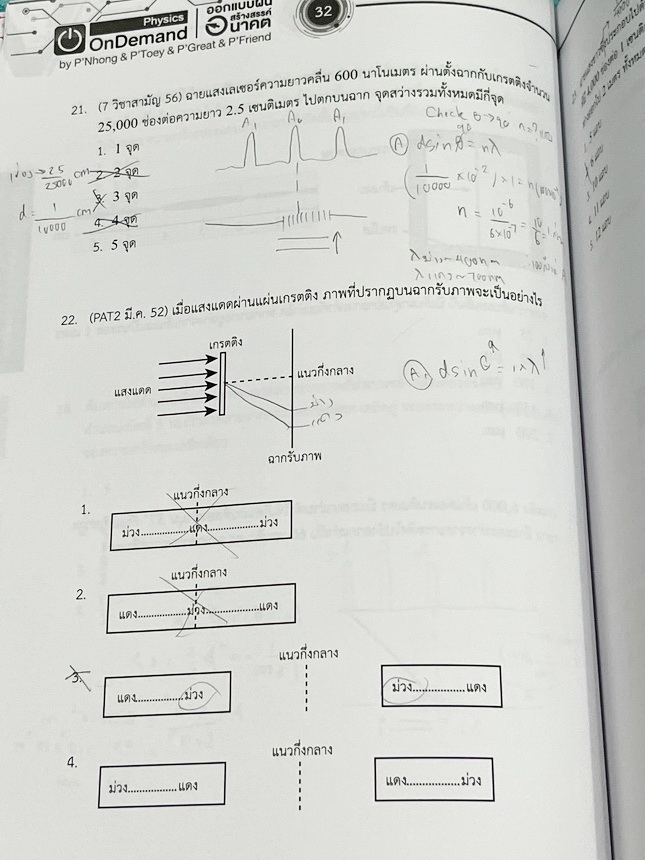 Physics
OnDemand
ออกแบบฝัน
สร้างสรรค์
นาคต
by P'Nhong & P'Toey & P'Great & P'Friend
32
21. (7 วิชาสามัญ 56) ฉายแสงเลเซอร์ความยาวคลื่น 600 นาโนเมตร ผ่านตั้งฉากกับเกรตติงจำนวน
25,000 ช่องต่อความยาว 2.5 เซนติเมตร ไปตกบนฉาก จุดสว่างรวมทั้งหมดมีกี่จุด
1. 1 จุด
2. 2 จุด
3. 3 จุด
4. 4 จุด
5. 5 จุด
A₁ A₀ A₁
Check
A dsinθ = nλ
d = 1/10000 cm
n = 10⁻⁶/6×10⁻⁷ = 10/6
22. (PAT2 มี.ค. 52) เมื่อแสงแดดผ่านแผ่นเกรตติง ภาพที่ปรากฏบนฉากรับภาพจะเป็นอย่างไร
เกรตติง
แสงแดด
แนวกึ่งกลาง
ม่วง
แดง
ฉากรับภาพ
1.
แนวกึ่งกลาง
ม่วง....................แดง....................ม่วง
2.
แนวกึ่งกลาง
แดง....................ม่วง....................แดง
3.
แนวกึ่งกลาง
แดง.................ม่วง
ม่วง.................แดง
4.
แนวกึ่งกลาง
ม่วง.................แดง
แดง.................ม่วง